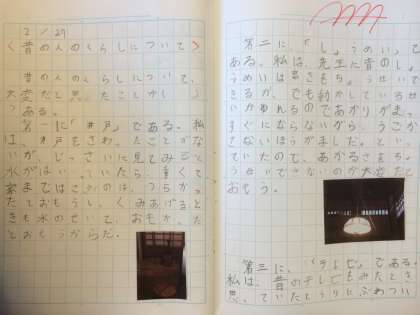 2/29
〈昔の人のくらしについて〉
昔の人のくらしについて、
大変だと思ったことが
つある。
第一に「井戸」である。私
は、井戸をさわったことがな
いが、じっさいに見てみて
水がはいっていたら、重くて
家まではこぶのは、つらかっ
たとおもうし、くみあげると
きも水のせいで、おもかった
とおもうからだ。
第二に、「しょうめい」で
ある。私は、先生に昔のしょ
うめいは
きるが、でも動かしているせ
いかゆれるのであかりがまっ
すぐにならないから、うごか
さないほうがましだ。といっ
ていたので、あかるさをちょ
うせいできないのが大変だと
おもう。
第三に、「テレビ」である。
私は、昔のテレビをみたとき
思っていたとうりに